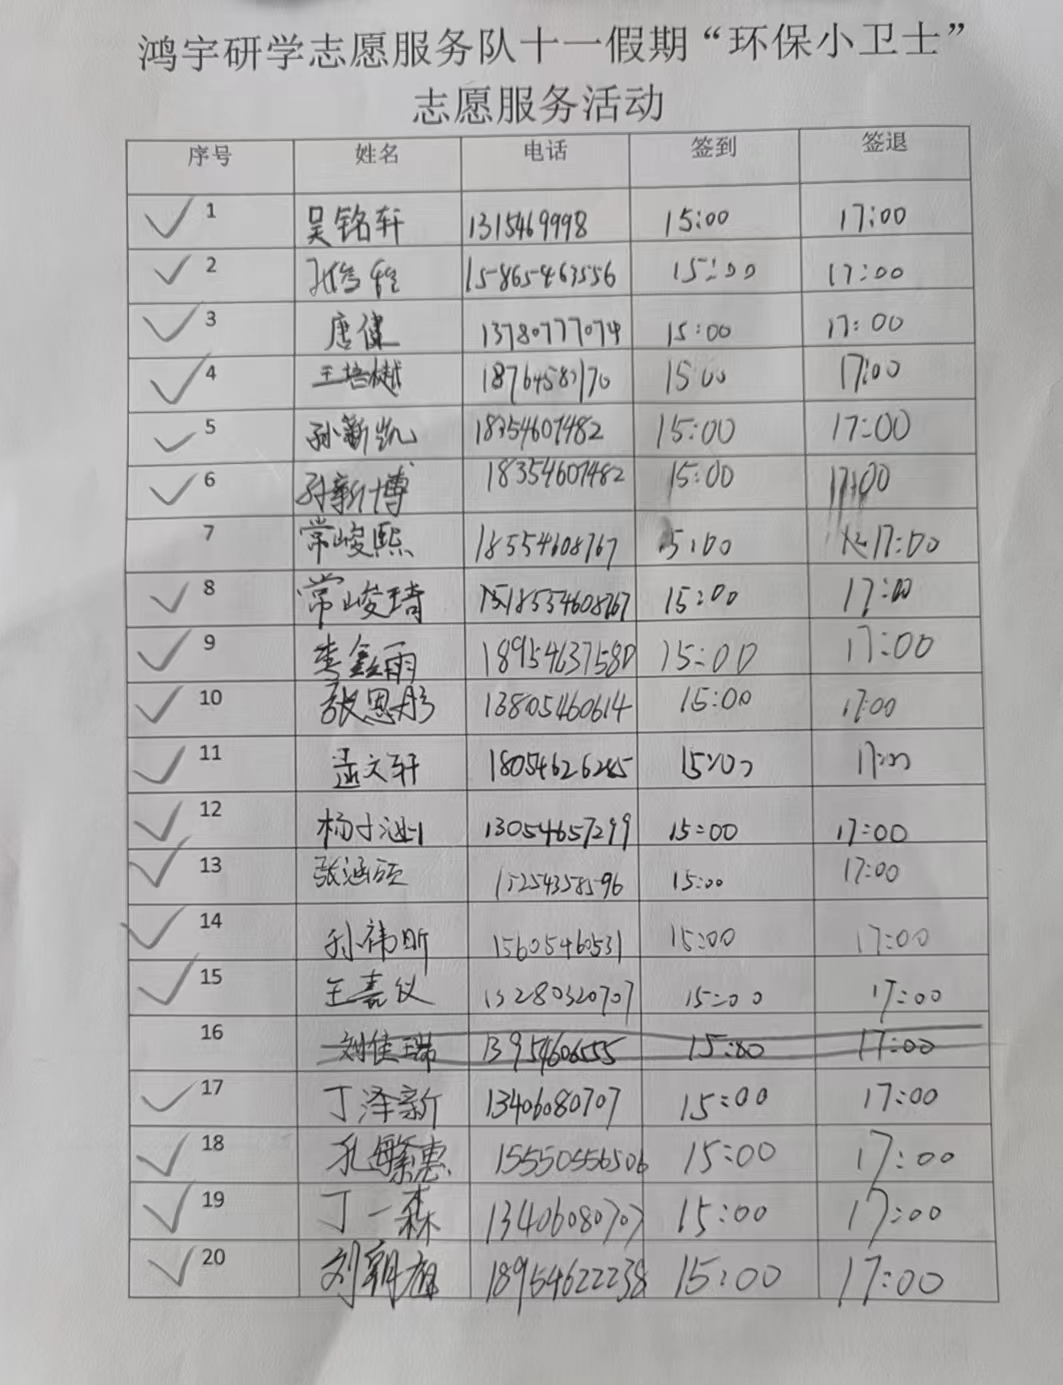 鸿宇研学志愿服务队十一假期“环保小卫士”
志愿服务活动
序号 姓名 电话 签到 签退
1 吴铭轩 1315469998 15:00 17:00
2 15865463556 15:00 17:00
3 唐健 13780777074 15:00 17:00
4 王培樾 15:00 17:00
5 孙新凯 18354607482 15:00 17:00
6 孙新博 18354607482 15:00 17:00
7 常峻熙 18554608767 15:00 17:00
8 常峻琦 15:00 17:00
9 李鑫雨 18954637580 15:00 17:00
10 张恩彤 13805460614 15:00 17:00
11 孟文轩 18054626245 15:00 17:00
12 13054657299 15:00 17:00
13 张涵硕 15254358596 15:00 17:00
14 孙祎昕 15605460531 15:00 17:00
15 王嘉仪 13280320707 15:00 17:00
16 刘佳瑞 13954606555 15:00 17:00
17 丁泽新 13406080707 15:00 17:00
18 孔繁惠 15550556506 15:00 17:00
19 丁一森 13406080707 15:00 17:00
20 18954622238 15:00 17:00